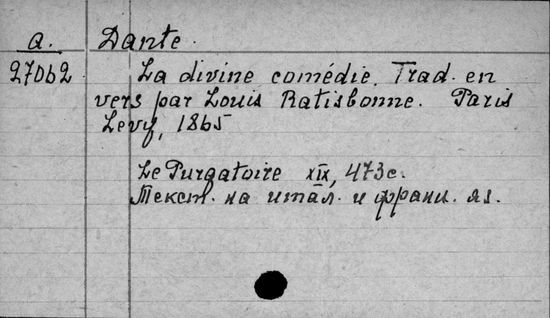 a. Dante.
27062 La divine comédie. Trad. en
vers par Louis Ratisbonne. Paris
Levy, 1865
Le Purgatoire XIX, 473c.
Текст. на итал. и франц. яз.